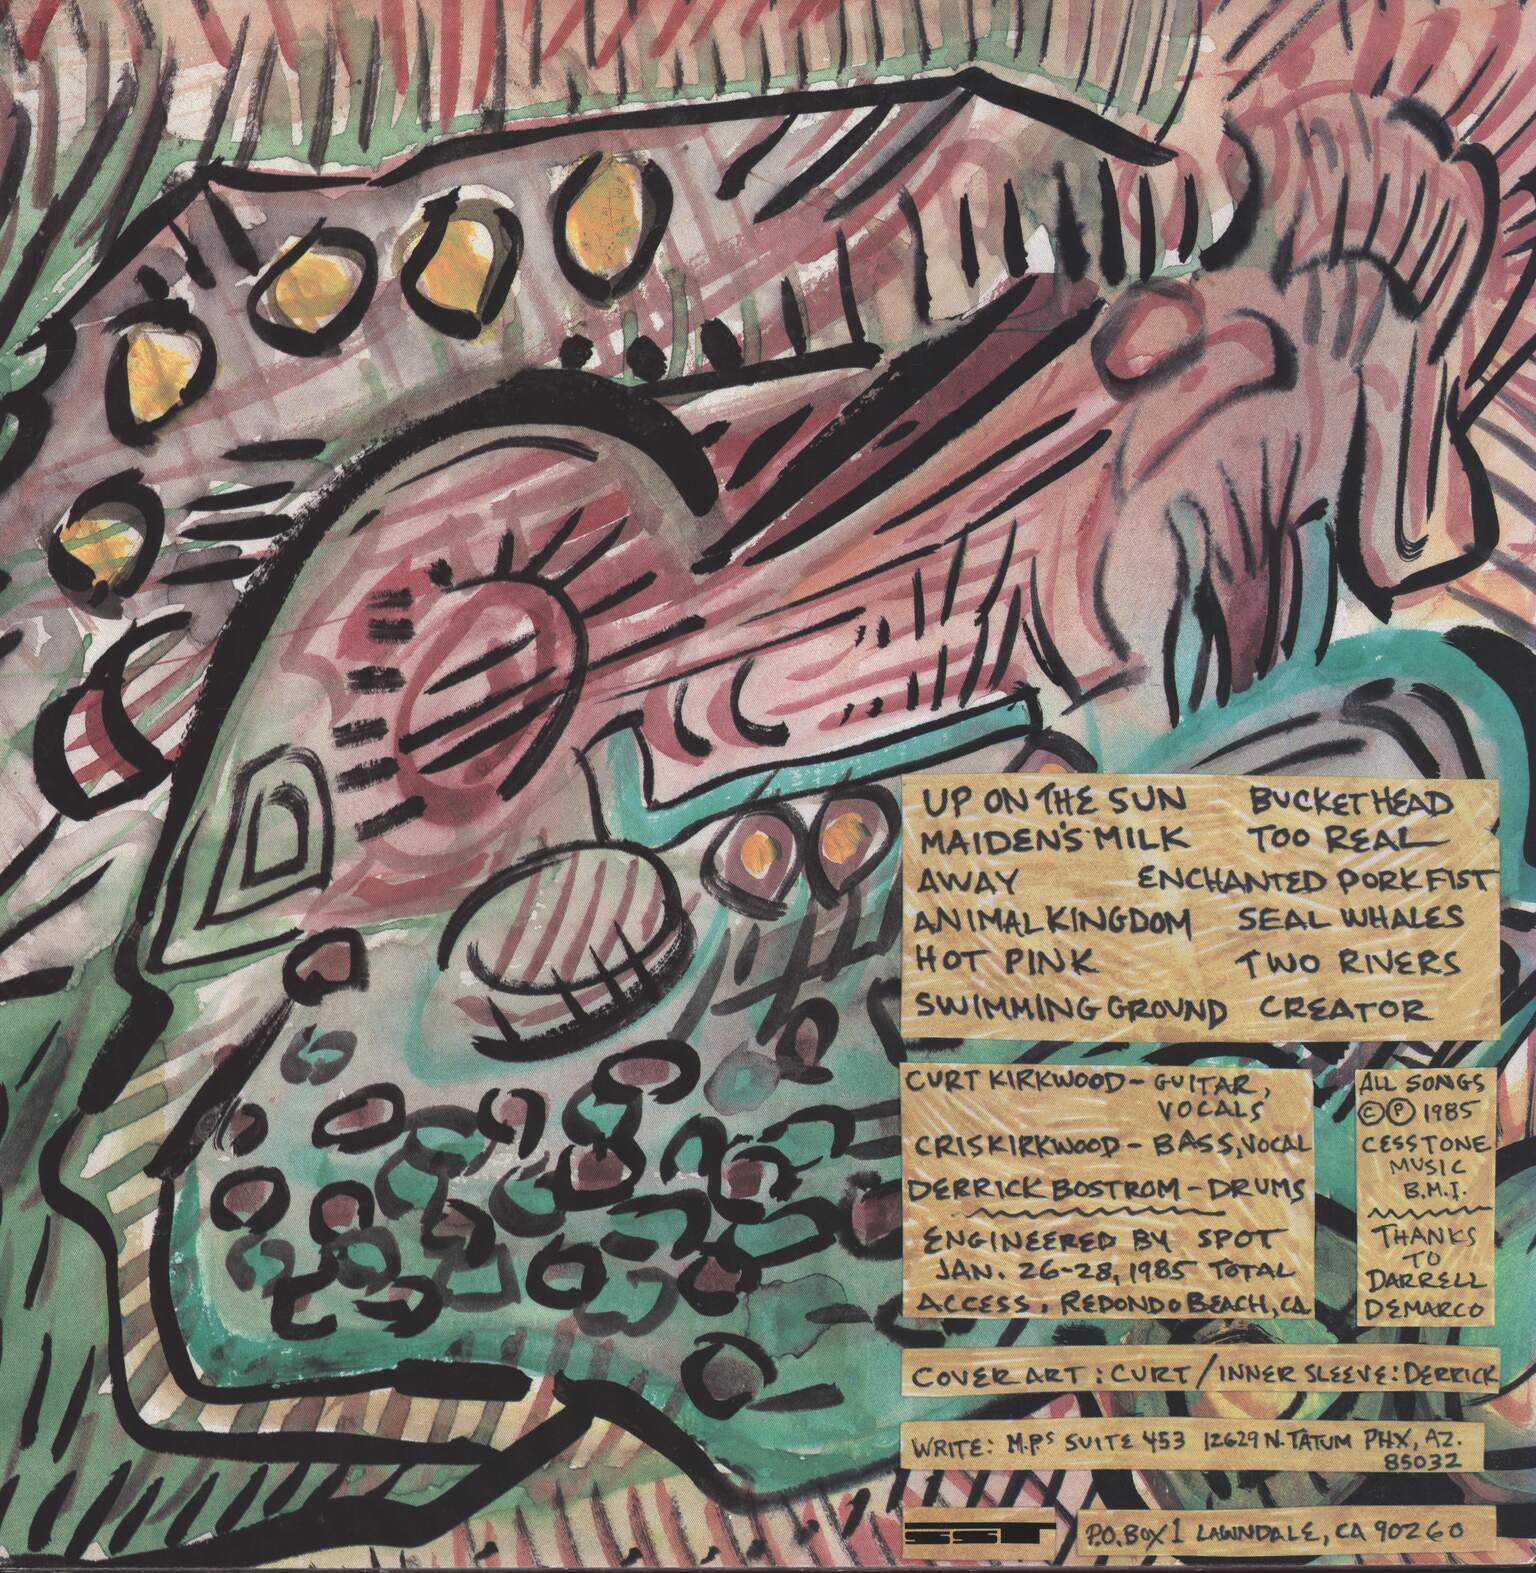 UP ON THE SUN
MAIDEN'S MILK
AWAY
ANIMAL KINGDOM
HOT PINK
SWIMMING GROUND
BUCKETHEAD
TOO REAL
ENCHANTED PORK FIST
SEAL WHALES
TWO RIVERS
CREATOR
CURT KIRKWOOD - GUITAR,
VOCALS
CRIS KIRKWOOD - BASS, VOCAL
DERRICK BOSTROM - DRUMS
ENGINEERED BY SPOT
JAN. 26-28, 1985 TOTAL
ACCESS, REDONDO BEACH, CA
ALL SONGS
© ℗ 1985
CESSTONE
MUSIC
B.M.I.
THANKS
TO
DARRELL
DEMARCO
COVER ART : CURT / INNER SLEEVE: DERRICK
WRITE: M.Ps SUITE 453 12629 N. TATUM PHX, AZ.
85032
SST
P.O. BOX 1 LAWNDALE, CA 90260